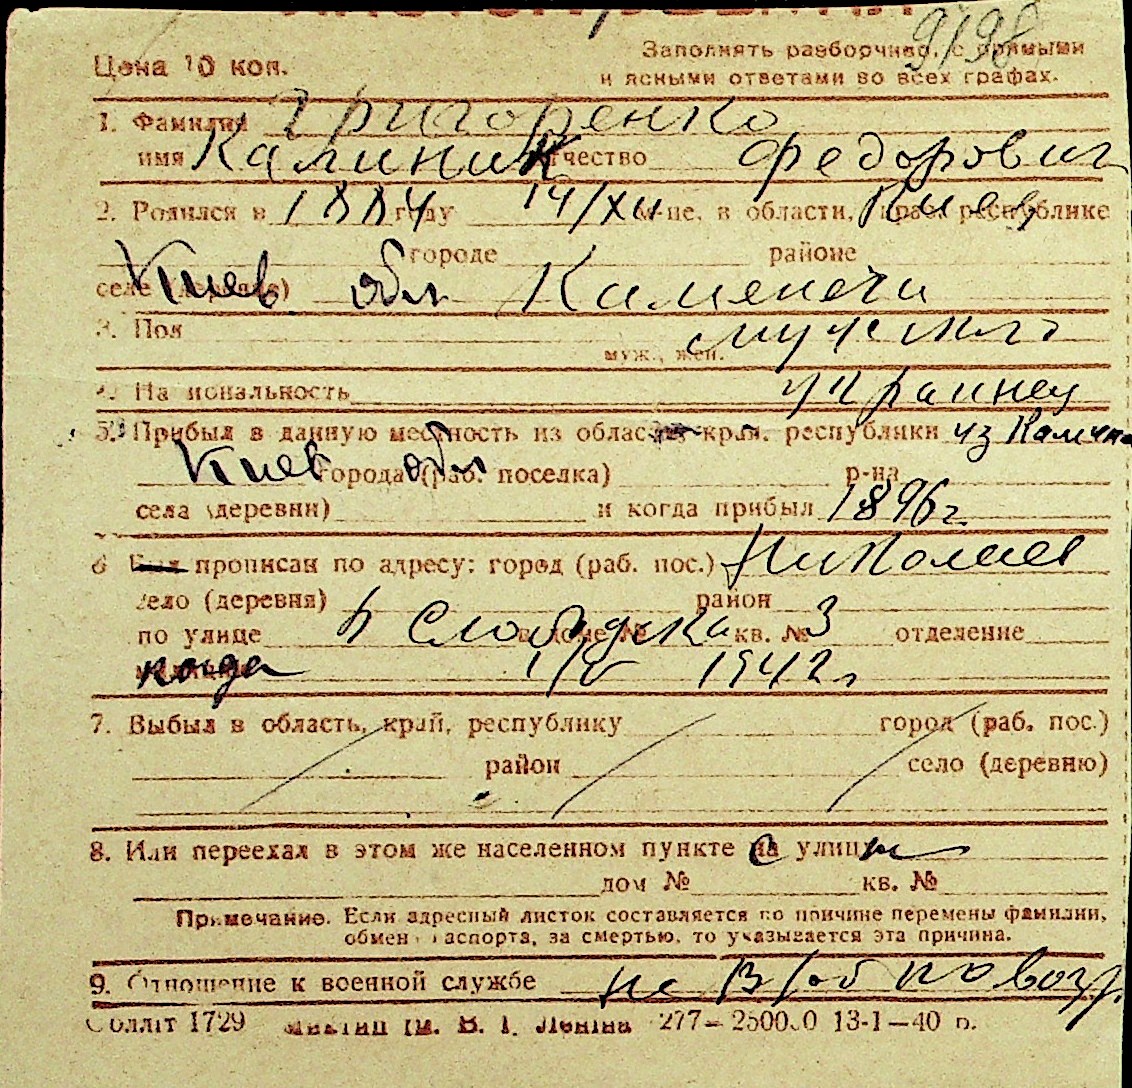 9/98
Цена 10 коп.
Заполнять разборчиво, с прямыми
и ясными ответами во всех графах.
1. Фамилия Григоренко
имя Калиник отчество Федорович
2. Родился в 1884 году 14/XII м-це, в области, крае, республике Киев
городе районе
Киев обл Каменечи
селе (деревне)
3. Пол
муж., жен.
4. Национальность украинец
5. Прибыл в данную местность из области, края, республики из
Киев обл города (раб. поселка) р-на
села (деревни) и когда прибыл 1896 г.
6 прописан по адресу: город (раб. пос.) Николаев
село (деревня) район
по улице Слободска в доме № кв. № 3 отделение
когда 1/V 1942 г
7. Выбыл в область, край, республику город (раб. пос.)
район село (деревню)
8. Или переехал в этом же населенном пункте с улицы
дом № кв. №
Примечание. Если адресный листок составляется по причине перемены фамилии,
обмена паспорта, за смертью, то указывается эта причина.
9. Отношение к военной службе не в/об по возр.
Обллiт 1729 iм. В. І. Ленiна 277—250000 13-1—40 р.